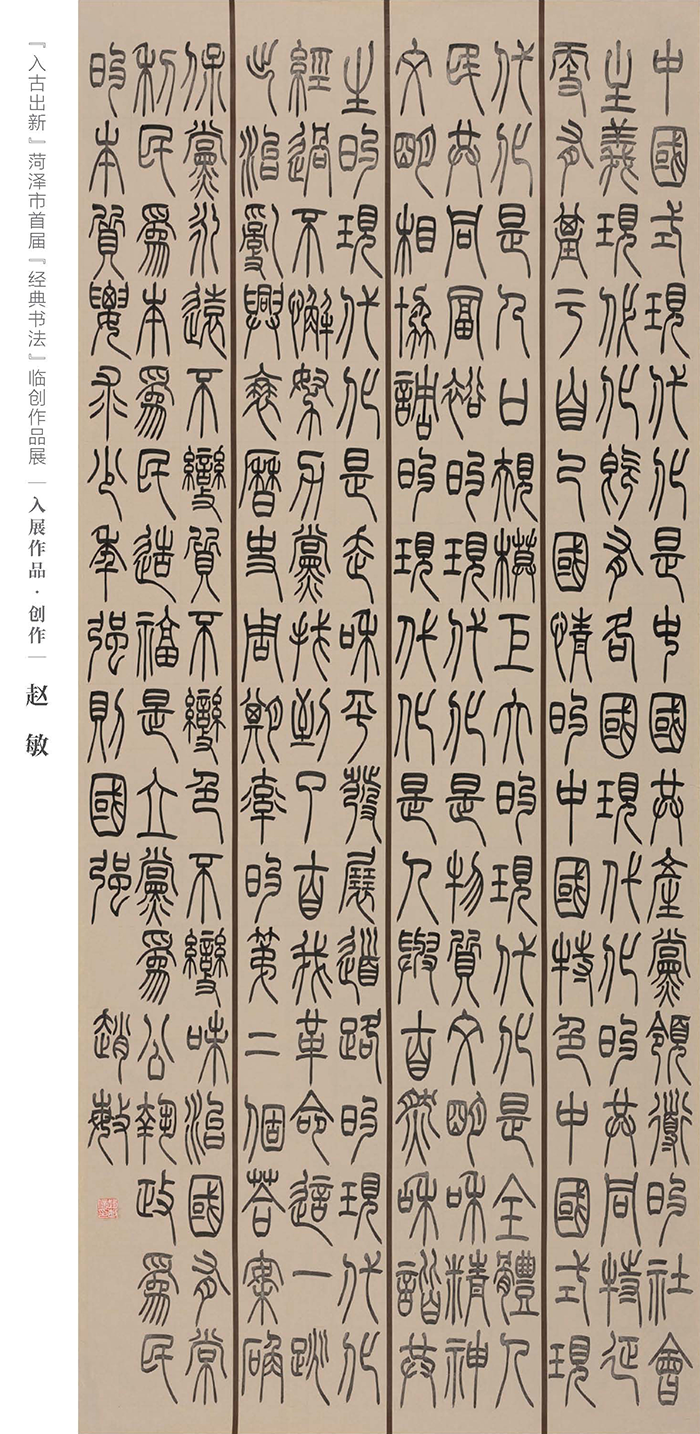 『入古出新』菏泽市首届『经典书法』临创作品展｜入展作品·创作｜赵敏
中國式現代化是中國共產黨領導的社會
主義現代化既有各國現代化的共同特征
更有基于自己國情的中國特色中國式現
代化是人口規模巨大的現代化是全體人
民共同富裕的現代化是物質文明和精神
文明相協調的現代化是人與自然和諧共
生的現代化是走和平發展道路的現代化
經過不懈努力黨找到了自我革命這一跳
出治亂興衰曆史周期率的第二個答案確
保黨永遠不變質不變色不變味治國有常
利民爲本爲民造福是立黨爲公執政爲民
的本質要求少年強則國強
趙敏